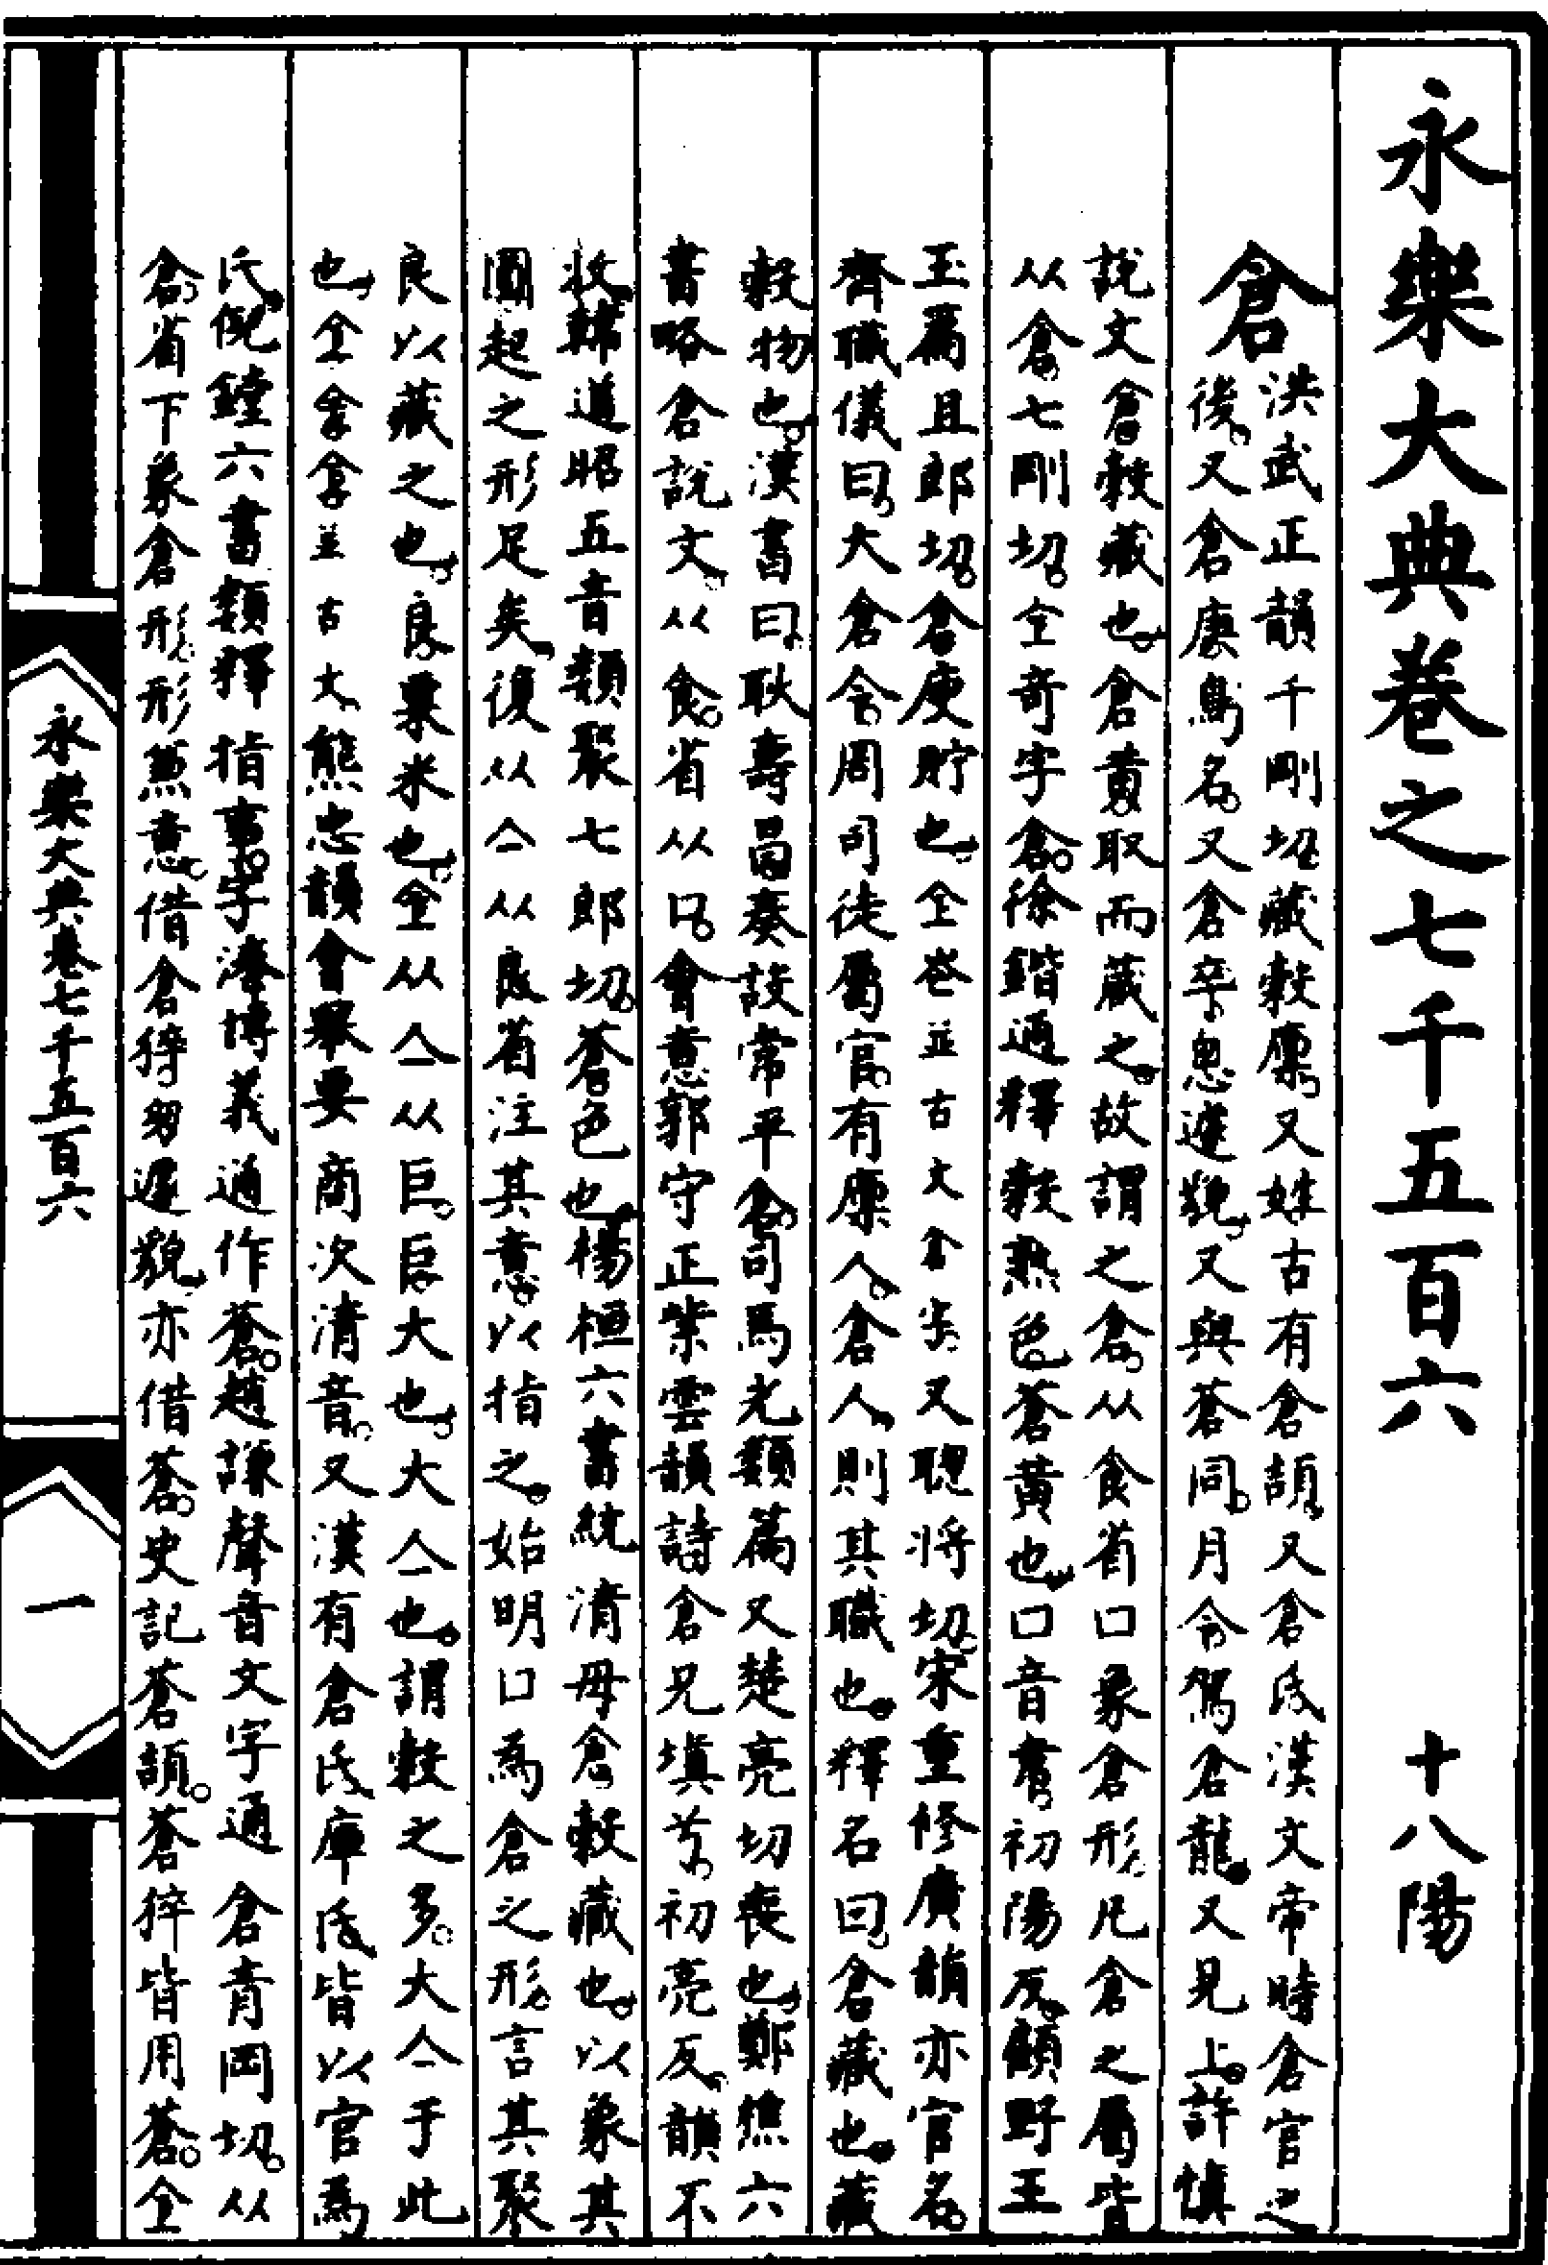 永樂大典卷之七千五百六　十八陽
倉
洪武正韻千剛切藏穀廩又姓古有倉頡又倉氏漢文帝時倉官之
後又倉庚鳥名又倉卒悤遽貌又與蒼同月令駕倉龍又見上許慎
說文倉穀藏也倉黃取而藏之故謂之倉从食省口象倉形凡倉之屬皆
从倉七剛切仺奇字倉徐鍇通釋穀熟色蒼黃也口音書初陽反顧野王
玉篇且郎切倉庾貯也仺並古文倉字又聰將切宋重修廣韻亦官名
齊職儀曰大倉令周司徒屬官有廩人倉人則其職也釋名曰倉藏也藏
穀物也漢書曰耿壽昌奏設常平倉司馬光類篇又楚亮切喪也鄭樵六
書略倉說文从食省从口會意郭守正紫雲韻詩倉兄填兮初亮反韻不
收韓道昭五音類聚七郎切蒼色也楊桓六書統清母倉穀藏也以象其
圓起之形足矣復从亼从良省注其意以指之始明口為倉之形言其聚
良以藏之也良粟米也仺从亼从巨巨大也大亼也謂穀之多大亼于此
也仺並古文熊忠韻會舉要商次清音又漢有倉氏庫氏皆以官為
氏倪鏜六書類釋指事字濚博義通作蒼趙謙聲音文字通倉青岡切从
倉省下象倉形形兼意借倉猝匆遽貌亦借蒼史記蒼頡蒼猝皆用蒼仺
永樂大典卷七千五百六
一